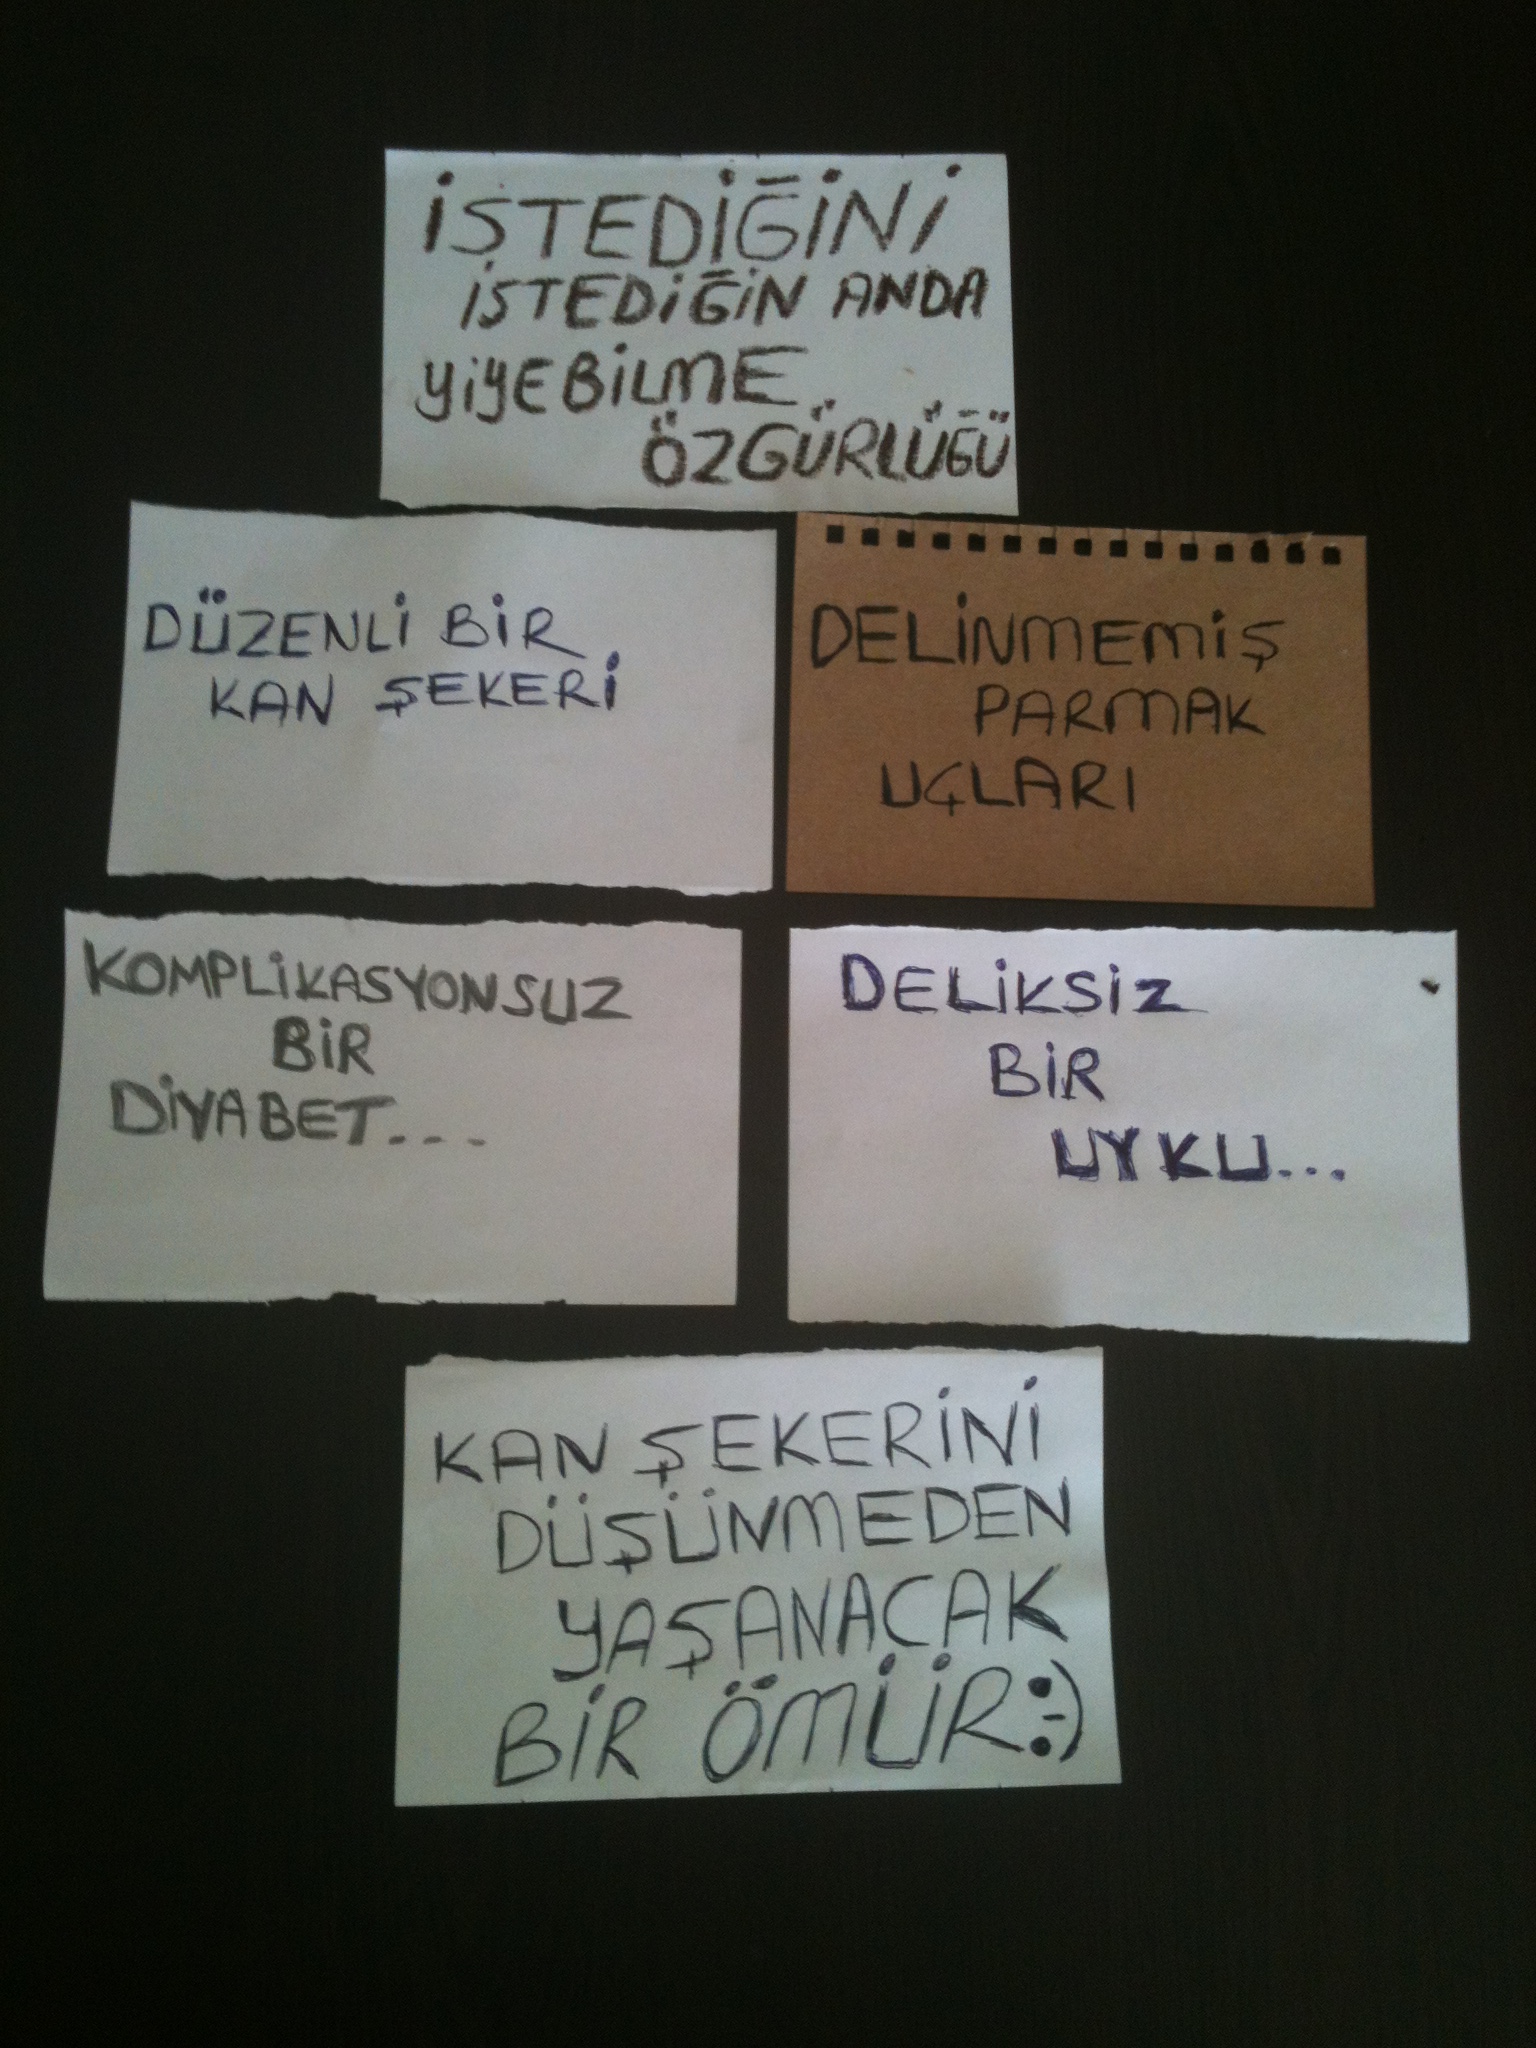 İSTEDİĞİNİ
İSTEDİĞİN ANDA
YİYEBİLME
ÖZGÜRLÜĞÜ
DÜZENLİ BİR
KAN ŞEKERİ
DELİNMEMİŞ
PARMAK
UÇLARI
KOMPLİKASYONSUZ
BİR
DİYABET...
DELİKSİZ
BİR
UYKU...
KAN ŞEKERİNİ
DÜŞÜNMEDEN
YAŞANACAK
BİR ÖMÜR:-)